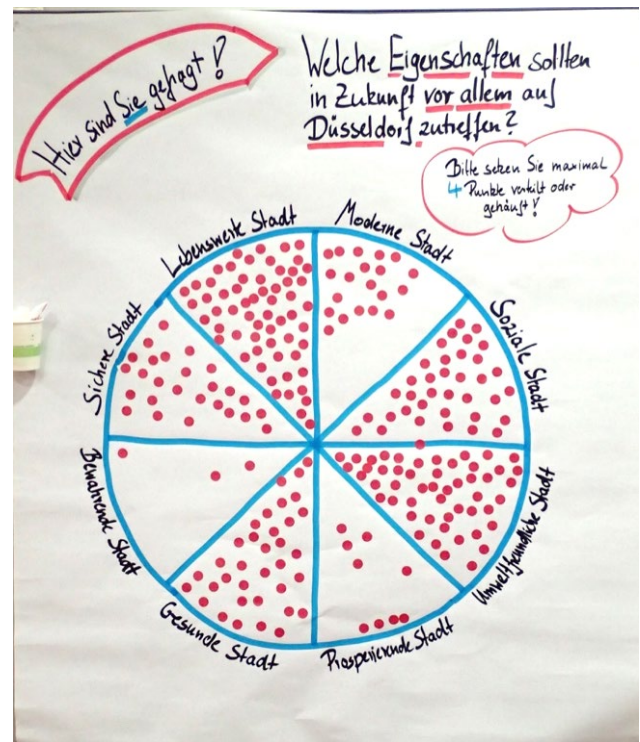 Hier sind Sie gefragt!
Welche Eigenschaften sollten
in Zukunft vor allem auf
Düsseldorf zutreffen?
Bitte setzen Sie maximal
4 Punkte verteilt oder
gehäuft!
Lebenswerte Stadt
Moderne Stadt
Soziale Stadt
Umweltfreundliche Stadt
Prosperierende Stadt
Gesunde Stadt
Bewahrende Stadt
Sichere Stadt